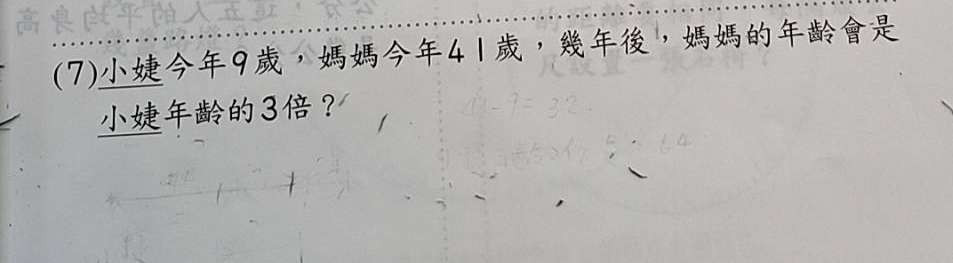 (7)小婕今年9歲，媽媽今年41歲，幾年後，媽媽的年齡會是
小婕年齡的3倍？